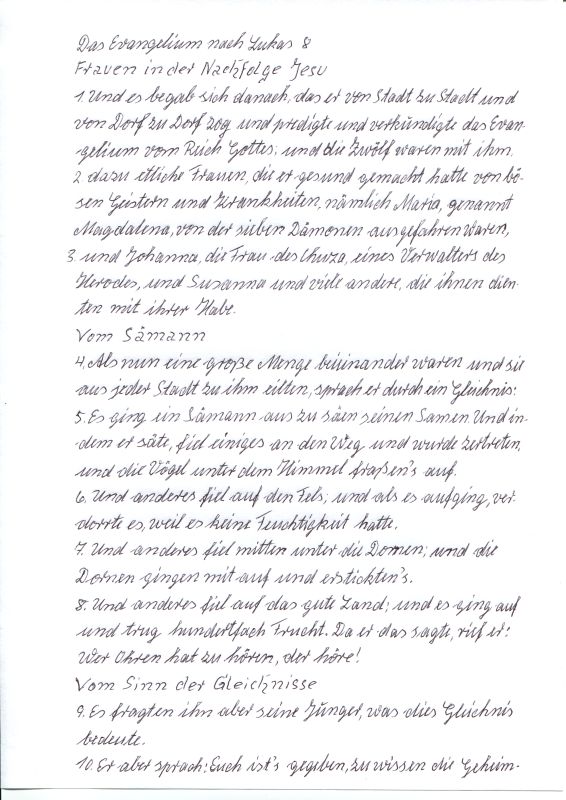 Das Evangelium nach Lukas 8
Frauen in der Nachfolge Jesu
1. Und es begab sich danach, das er von Stadt zu Stadt und
von Dorf zu Dorf zog und predigte und verkündigte das Evan-
gelium vom Reich Gottes; und die Zwölf waren mit ihm,
2 dazu etliche Frauen, die er gesund gemacht hatte von bö-
sen Geistern und Krankheiten, nämlich Maria, genannt
Magdalena, von der sieben Dämonen ausgefahren waren,
3. und Johanna, die Frau des Chuza, eines Verwalters des
Herodes, und Susanna und viele andere, die ihnen dien-
ten mit ihrer Habe.
Vom Sämann
4. Als nun eine große Menge beieinander waren und sie
aus jeder Stadt zu ihm eilten, sprach er durch ein Gleichnis:
5. Es ging ein Sämann aus zu säen seinen Samen. Und in-
dem er säte, fiel einiges an den Weg und wurde zertreten,
und die Vögel unter dem Himmel fraßen's auf.
6. Und anderes fiel auf den Fels; und als es aufging, ver-
dorrte es, weil es keine Feuchtigkeit hatte.
7. Und anderes fiel mitten unter die Dornen; und die
Dornen gingen mit auf und erstickten's.
8. Und anderes fiel auf das gute Land; und es ging auf
und trug hundertfach Frucht. Da er das sagte, rief er:
Wer Ohren hat zu hören, der höre!
Vom Sinn der Gleichnisse
9. Es fragten ihn aber seine Jünger, was dies Gleichnis
bedeute.
10. Er aber sprach: Euch ist's gegeben, zu wissen die Geheim-